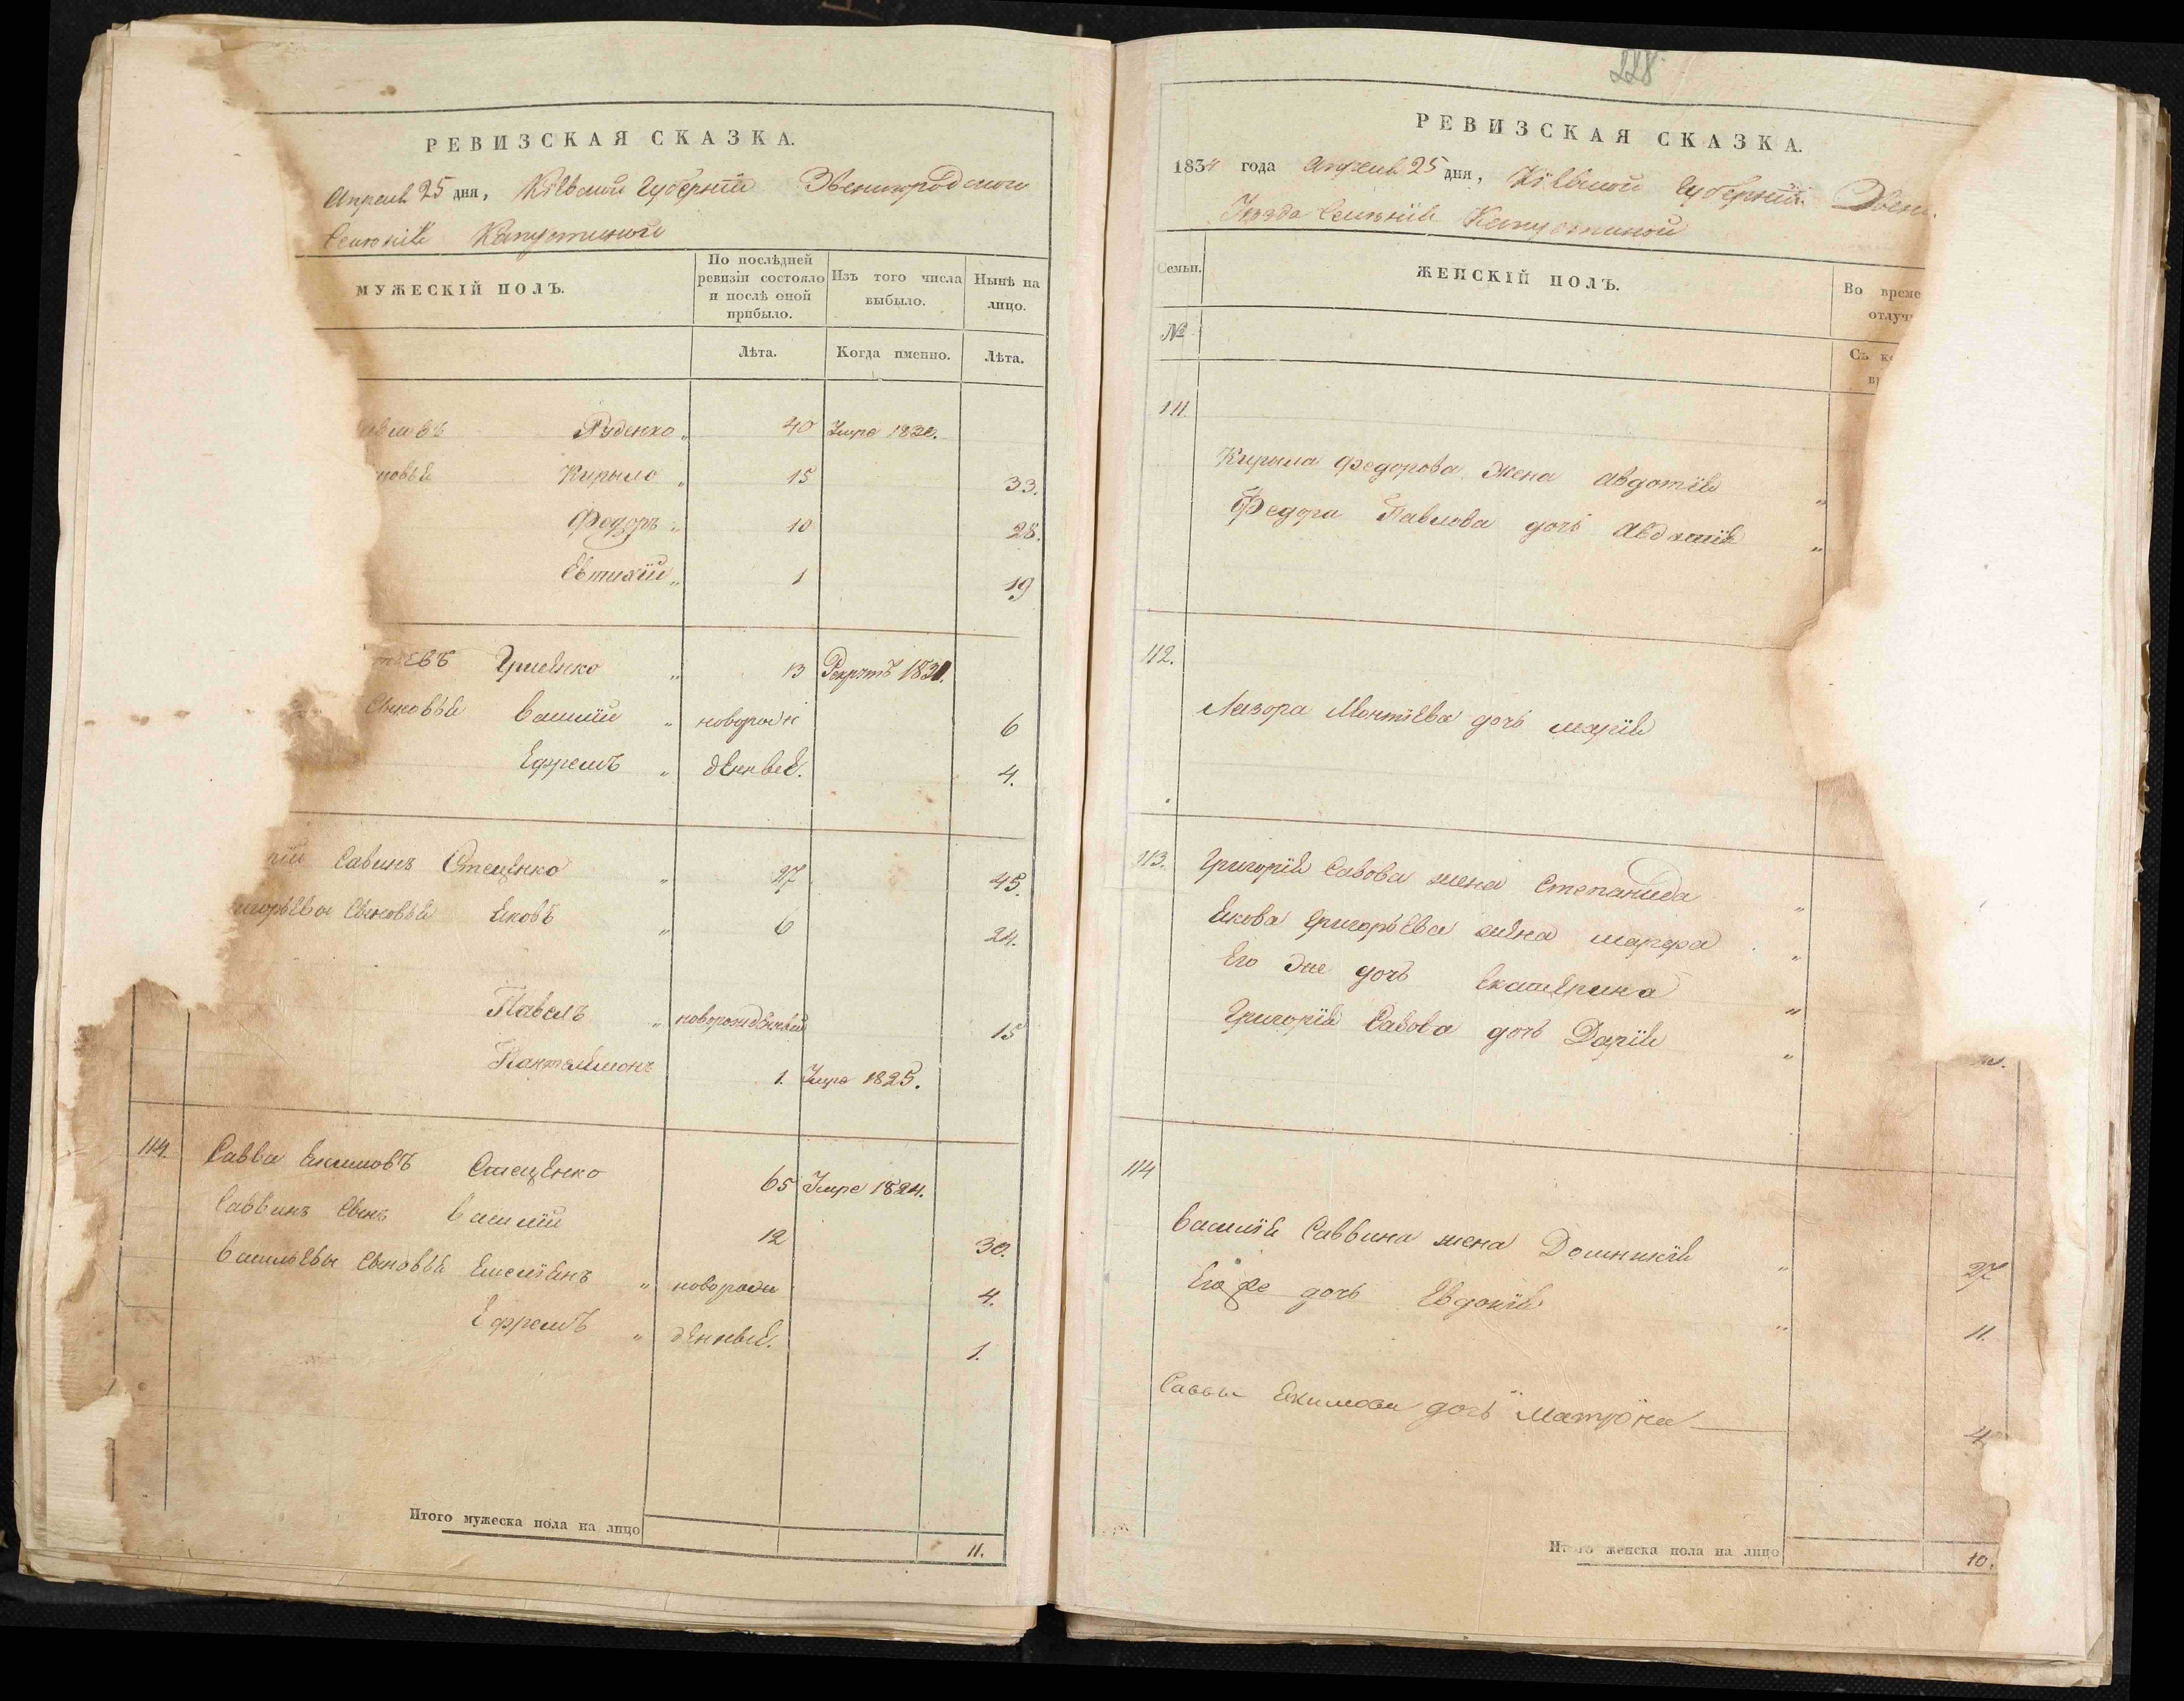 РЕВИЗСКАЯ СКАЗКА.
Апреля 25 дня, Кіевской Губерніи Звенигородского
Селенія Капустиной
МУЖЕСКІЙ ПОЛЪ.
По послѣдней ревизіи состояло и послѣ оной прибыло.
Изъ того числа выбыло.
Нынѣ на лицо.
Лѣта.
Когда именно.
Лѣта.
Руденко „ 40 Умре
новья Кирыло „ 15 33.
Федоръ „ 10 28.
Евтихій „ 1 19
Гриценко „ 13 Рекрутъ 1831.
Сыновья Василій „ новорож 6
Ефремъ „ денные. 4.
Савинъ Стеценко „ 27 45.
Сыновья Яковъ „ 6 24.
Павелъ „ новорожденный 15
Пантелимонъ 1. Умре 1825.
114. Савва Акимовъ Стеценко 65 Умре 1824.
Саввинъ Сынъ Василій 12 30.
Васильевы Сыновья Емеліянъ „ новорож 4.
Ефремъ „ денные. 1.
Итого мужеска пола на лицо 11.
228
РЕВИЗСКАЯ СКАЗКА.
1834 года Апреля 25 дня, Кіевской Губерніи Звени
Уѣзда Селенія Капустиной
Семьи.
ЖЕНСКІЙ ПОЛЪ.
Во време
отлуч
№
Съ к
111.
Кирыла Федорова Жена Авдотія „
Федора Павлова дочь Авдотія „
112.
Лазора Монтіева дочь Марія
113. Григорія Савова жена Степанида „
Якова Григорьева жена Марфа „
Его же дочь Екатерина „
Григорія Савова дочь Дарія „
114
Василія Саввина жена Домникія „ 27
Его же дочь Евдокія „ 11.
Саввы Якимова дочь Матрона 4
Итого женска пола на лицо 10.